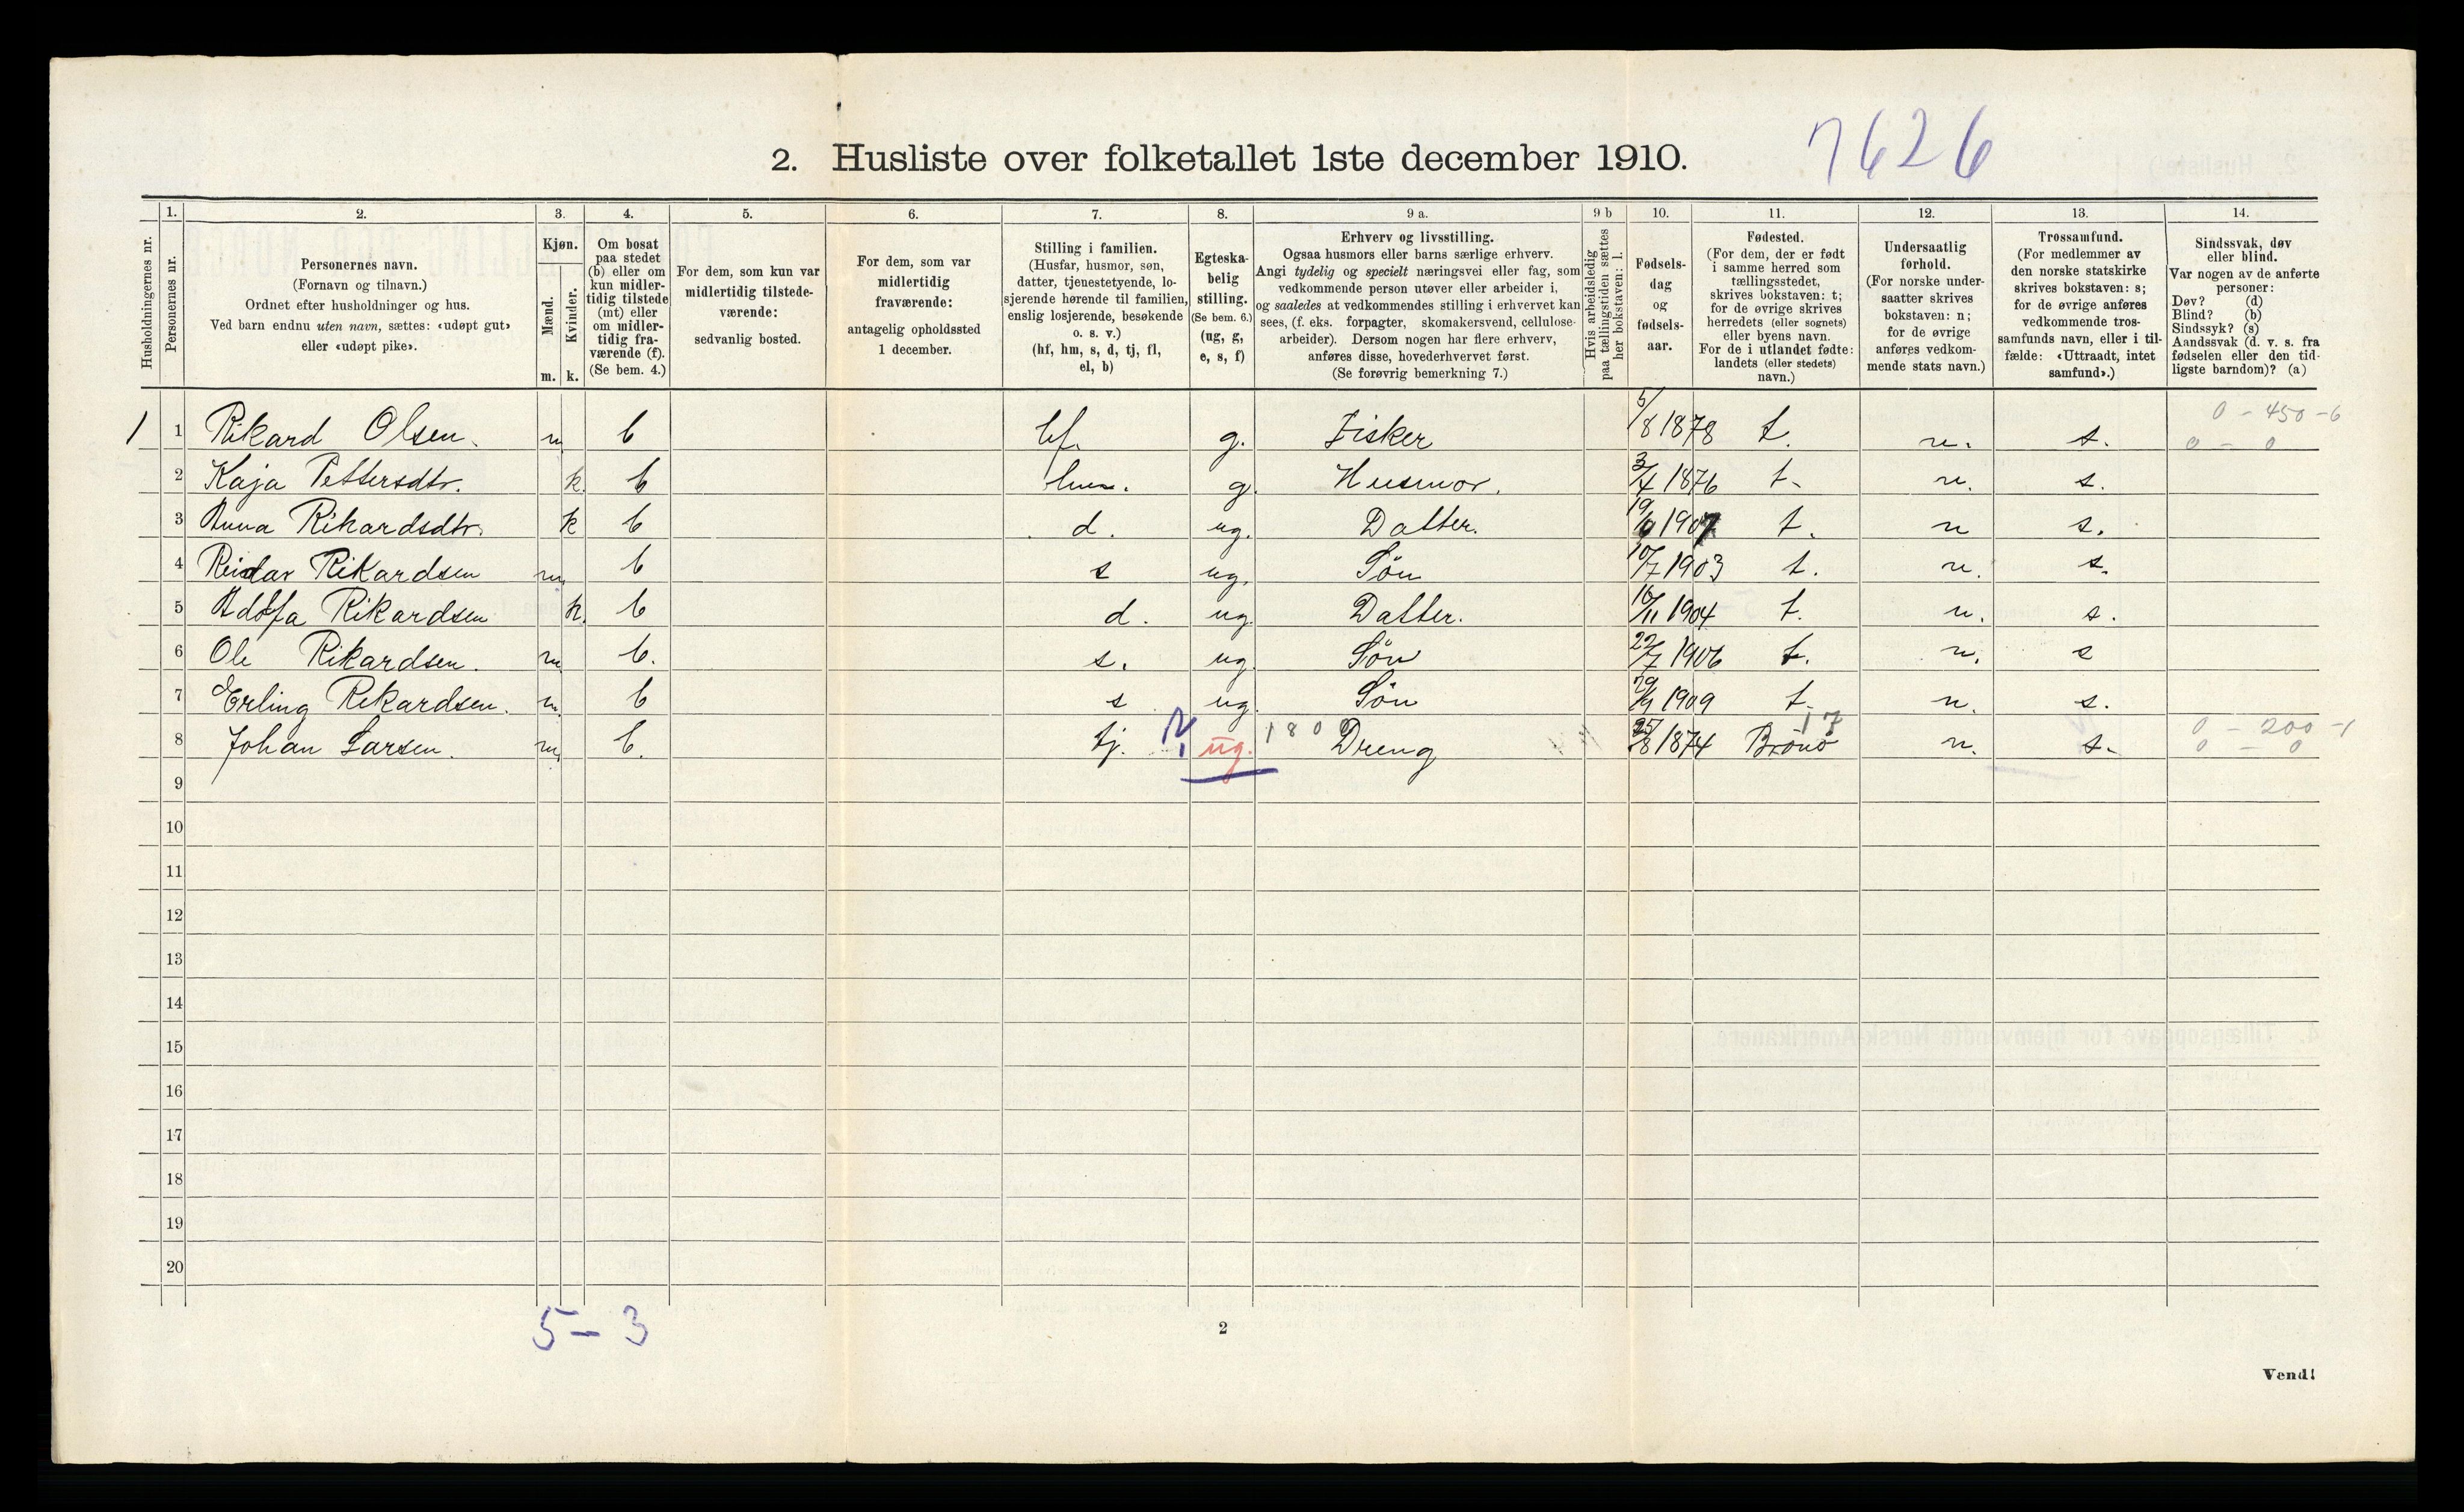 2. Husliste over folketallet 1ste december 1910. 7626
Husholdningernes nr.
1. Personernes nr.
2. Personernes navn.
(Fornavn og tilnavn.)
Ordnet efter husholdninger og hus.
Ved barn endnu uten navn, sættes: «udøpt gut»
eller «udøpt pike».
3. Kjøn.
Mænd. m.
Kvinder. k.
4. Om bosat
paa stedet
(b) eller om
kun midler-
tidig tilstede
(mt) eller
om midler-
tidig fra-
værende (f).
(Se bem. 4.)
5. For dem, som kun var
midlertidig tilstede-
værende:
sedvanlig bosted.
6. For dem, som var
midlertidig
fraværende:
antagelig opholdssted
1 december.
7. Stilling i familien.
(Husfar, husmor, søn,
datter, tjenestetyende, lo-
sjerende hørende til familien,
enslig losjerende, besøkende
o. s. v.)
(hf, hm, s, d, tj, fl,
el, b)
8. Egteska-
belig
stilling.
(Se bem. 6.)
(ug, g,
e, s, f)
9 a. Erhverv og livsstilling.
Ogsaa husmors eller barns særlige erhverv.
Angi tydelig og specielt næringsvei eller fag, som
vedkommende person utøver eller arbeider i,
og saaledes at vedkommendes stilling i erhvervet kan
sees, (f. eks. forpagter, skomakersvend, cellulose-
arbeider). Dersom nogen har flere erhverv,
anføres disse, hovederhvervet først.
(Se forøvrig bemerkning 7.)
9 b Hvis arbeidsledig
paa tællingstiden sættes
her bokstaven: l.
10. Fødsels-
dag
og
fødsels-
aar.
11. Fødested.
(For dem, der er født
i samme herred som
tællingsstedet,
skrives bokstaven: t;
for de øvrige skrives
herredets (eller sognets)
eller byens navn.
For de i utlandet fødte:
landets (eller stedets)
navn.)
12. Undersaatlig
forhold.
(For norske under-
saatter skrives
bokstaven: n;
for de øvrige
anføres vedkom-
mende stats navn.)
13. Trossamfund.
(For medlemmer av
den norske statskirke
skrives bokstaven: s;
for de øvrige anføres
vedkommende tros-
samfunds navn, eller i til-
fælde: «Uttraadt, intet
samfund».)
14. Sindssvak, døv
eller blind.
Var nogen av de anførte
personer:
Døv? (d)
Blind? (b)
Sindssyk? (s)
Aandssvak (d. v. s. fra
fødselen eller den tid-
ligste barndom)? (a)
1 1 Rikard Olsen. m b hf. g. Fisker 5/8 1878 t. n. s. 0 - 450 - 6
0 - 0
2 Kaja Pettersdtr. k. b hm. g. Husmor. 3/4 1876 t. n. s.
3 Anna Rikardsdtr. k b d. ug. Datter. t. n s.
4 Reidar Rikardsen m b s ug. Søn 10/7 1903 t. n. s.
5 Rikardsen k. b d. ug. Datter. 16/11 1904 t. n. s.
6 Ole Rikardsen. m b. s. ug. Søn 22/7 1906 t. n. s
7 Erling Rikardsen. m. b s ug. Søn 1909 t. n. s.
8 Johan Larsen. m b. tj. ug. 180 Dreng 25/8 1874 Brønø 17 n. s. 0 - 200 - 1
0 - 0
9
10
11
12
13
14
15
16
17
18
19
20
5 - 3
2
Vend!